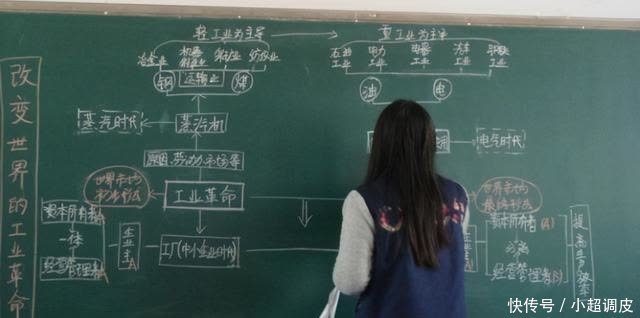 改变世界的工业革命
轻工业为主导
重工业为主导
冶金业
机器制造业
采矿业
纺织业
石油工业
电力工业
电器工业
汽车工业
钢铁工业
钢
运输业
煤
油
电
蒸汽时代
蒸汽机
电气时代
原因 劳动力 市场等
世界市场
初步形成
工业革命
世界市场
最终形成
资本所有者A
一体
经营管理者A
企业主A
工厂(中小企业时代)
资本所有者(A)
分离
经营管理者(B)
提高生产效率
快传号 / 小超调皮